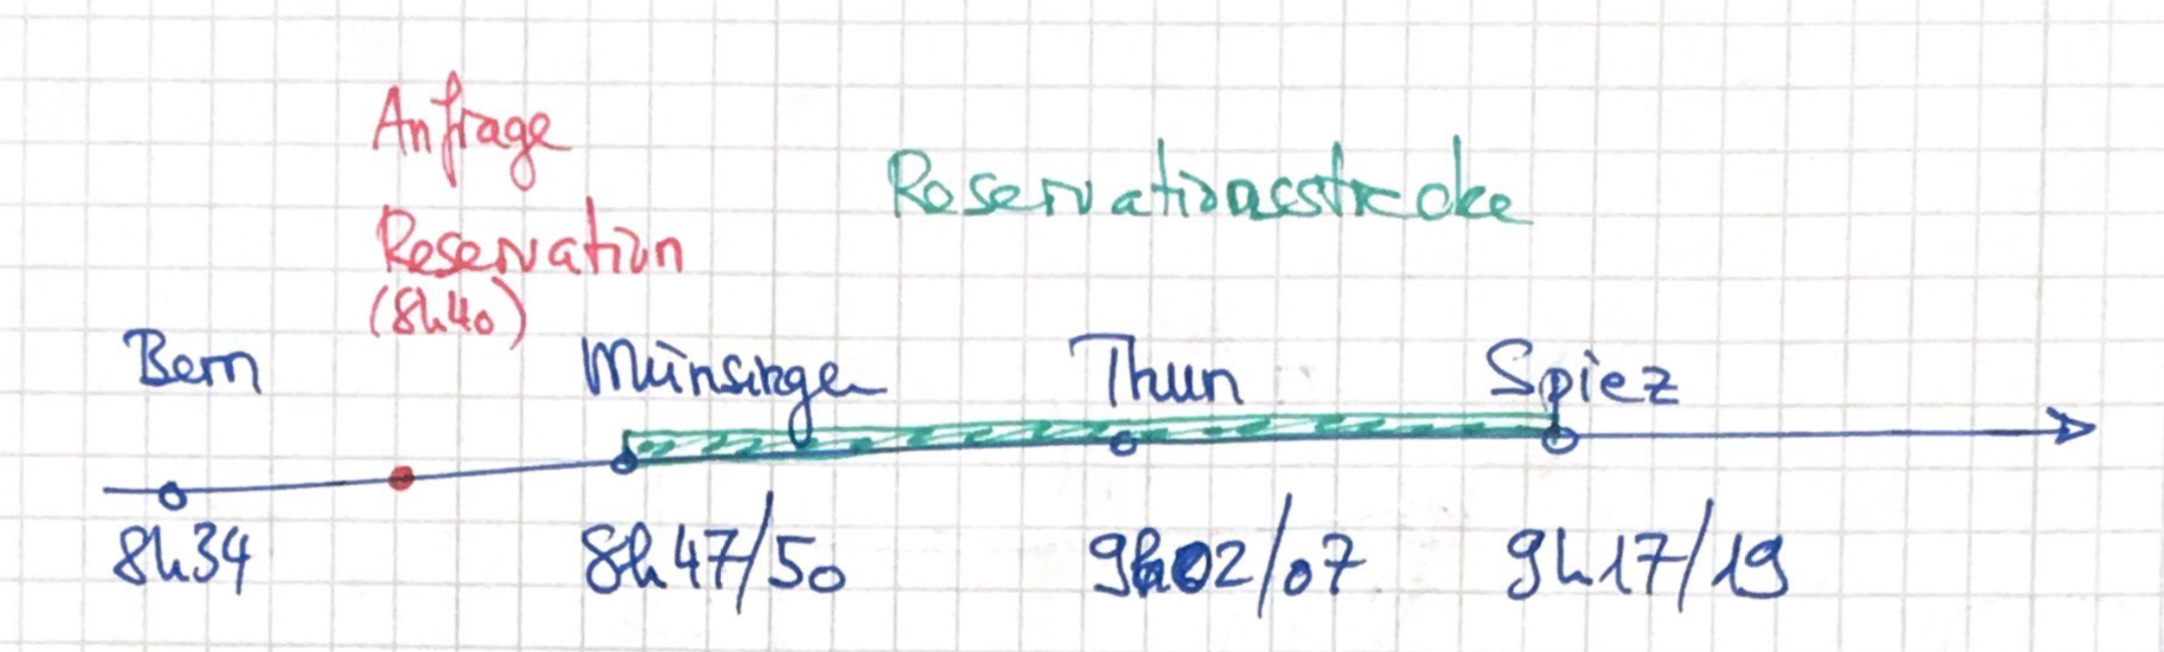 Anfrage
Reservation
(8h40)
Reservationsstrecke
Bern
Münsingen
Thun
Spiez
8h34
8h47/50
9h02/07
9h17/19